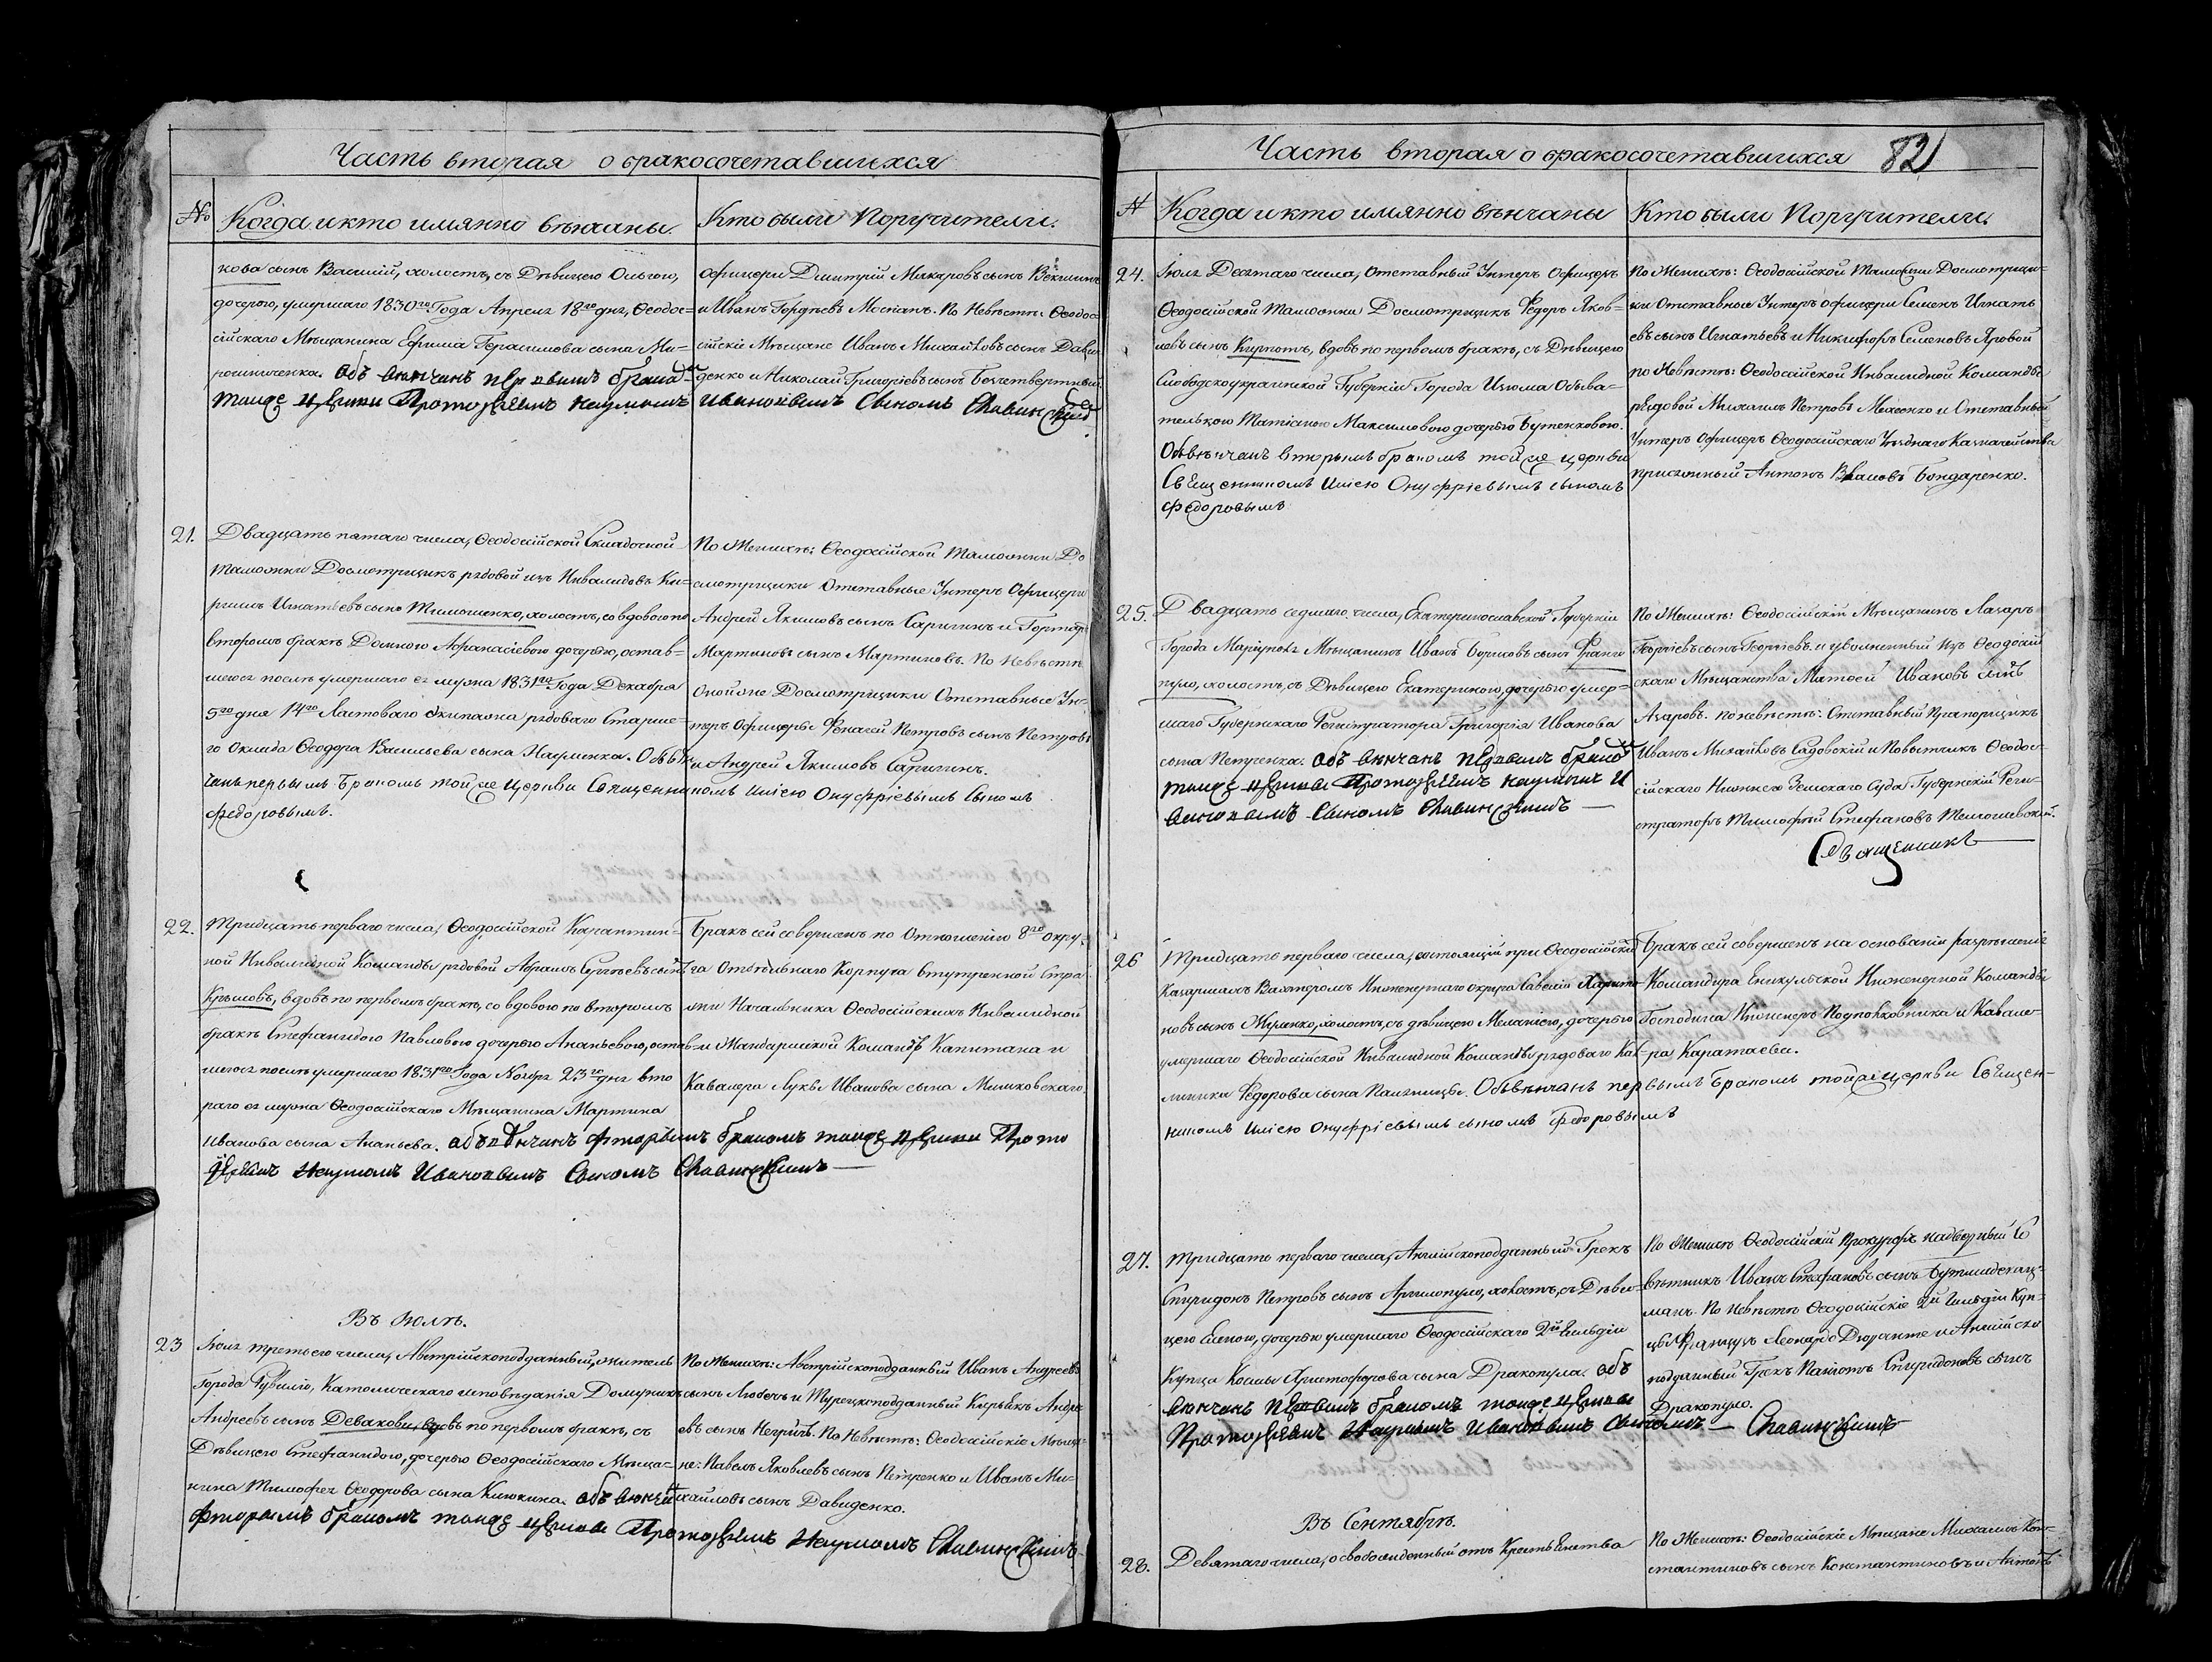 Часть вторая о бракосочетавшихся
№ Когда и кто имянно венчаны. Кто были Поручители.
кова сынъ Василій, холостъ, съ Девицею Ольгою,
дочерью, умершаго 1830го Года Апреля 18го дня, Ѳеодос=
сійскаго Мещанина Ефима Герасимова сына Ми=
рошниченка. Обвенчанъ первымъ бракомъ
тоиже церкви Протоіереемъ Наумомъ Ивановымъ Сыномъ Славинскимъ
офицеры Дмитрій Макаровъ сынъ
и Иванъ Гордеевъ Моспанъ. По Невесте: Ѳеодос=
сійскіе Мещане Иванъ Михайловъ сынъ Дави
денко и Николай Григоріевъ сынъ Безчетвертный.
21. Двадцать пятаго числа, Ѳеодосійской Складочной
Таможни Досмотрщикъ рядовой изъ Инвалидовъ Ки=
рилъ Игнатьевъ сынъ Тимошенко, холостъ, со вдовою по
второмъ браке Домною Афанасіевою дочерью, остав=
шеюся после умершаго ея мужа 1831го Года Декабря
5го дня 14го Ластоваго Экипажа рядоваго Старше=
го Оклада Ѳеодора Васильева сына Науменка. Обвен
чанъ первымъ Бракомъ тойже Церкви Священникомъ Иліею Онуфріевымъ Сыномъ
Федоровымъ.
По Женихе: Ѳеодосійской Таможни До
смотрщики Отставные Унтеръ Офицеры
Андрей Якимовъ сынъ Саричинъ и
Мартиновъ сынъ Мартиновъ. По Невесте
Оной же Досмотрщики Отставные Ун=
теръ Офицеры: Петровъ сынъ Петровъ
и Андрей Якимовъ Саричинъ.
22. Тридцать перваго числа, Ѳеодосійской Карантин=
ной Инвалидной Команды рядовой Абрамъ Сергеевъ сынъ
Крымовъ, вдовъ по первомъ браке, со вдовою по второмъ
браке Стефанидою Павловою дочерью Ананьевою, остав=
шеюся после умершаго 1831го Года Ноября 23го дня вто
раго ея мужа Ѳеодосійскаго Мещанина Мартина
Иванова сына Ананьева. Обвенчанъ фторымъ бракомъ тоиже церкви Прото
іереемъ Наумомъ Ивановымъ Сыномъ Славинскимъ
Бракъ сей совершенъ по Отношенію 8го окру=
га Отдельнаго Корпуса Внутренней Стра
жи Начальника Ѳеодосійскихъ Инвалидной
и Жандармской Командъ Капитана и
Кавалера Луки Иванова сына Мишковскаго.
Въ Июле.
23 Іюля третьего числа, Австрійскоподданный, житель
Города Рувилио, Католическаго исповеданія Домуникъ
Андреевъ сынъ Девакови, вдовъ по первомъ браке, съ
Девицею Стефанидою, дочерью Ѳеодосійскаго Меща=
нина Тимофея Ѳеодорова сына Клюкина. Обвенчанъ
фторымъ бракомъ тоиже церкви Протоіереемъ Наумомъ Славинскимъ
По Женихе: Австрійскоподданный Иванъ Андреевъ
сынъ Любичъ и Турецкоподданный Андре
евъ сынъ Негричъ. По Невесте: Ѳеодосійскіе Меща=
не: Павелъ Яковлевъ сынъ Петренко и Иванъ Ми=
хайловъ сынъ Давиденко.
Часть вторая о бракосочетавшихся 82
№ Когда и кто имянно венчаны Кто были Поручители.
24. Іюля Десятаго числа, Отставный Унтеръ Офицеръ
Ѳеодосійской Таможни Досмотрщикъ Федоръ Яков=
левъ сынъ Курпотъ, вдовъ по первомъ браке, съ Девицею
Слободскоукраинской Губерніи Города Изюма Обыва=
тельскою Татіаною Максимовою дочерью Бутенковою.
Обвенчанъ вторымъ бракомъ тойже церкви
Священникомъ Иліею Онуфріевымъ сыномъ
Федоровымъ
По Женихе: Ѳеодосійской Таможни Досмотрщи=
ки Отставные Унтеръ офицеры Семенъ Игнать
евъ сынъ Игнатьевъ и Никифоръ Семеновъ Яровой
по Невесте: Ѳеодосійской Инвалидной Команды
рядовой Михаилъ Петровъ Мехеенко и Отставный
Унтеръ Офицеръ Ѳеодосійскаго Уезднаго Казначейства
присяжный Антонъ Власовъ Бондаренко.
25. Двадцать седмаго числа, Екатеринославской Губерніи
Города Маріуполя Мещанинъ Иванъ Борисовъ сынъ Франго
пуло, холостъ, съ Девицею Екатериною, дочерью умер=
шаго Губернскаго Регистратора Григорія Иванова
сына Петренка. Обвенчанъ первымъ бракомъ
тоиже церкви Протоіереемъ Наумомъ И
вановымъ Сыномъ Славинскимъ
По Женихе: Ѳеодосійскій Мещанинъ Лазарь
Георгіевъ сынъ Георгіевъ и уволенный изъ Ѳеодосій
скаго Мещанства Матвей Ивановъ сынъ
Азаровъ. По невесте: Отставный Прапорщикъ
Иванъ Михайловъ Садовскій и Повытчикъ Ѳеодос=
сійскаго Нижняго Земскаго Суда Губернскій Реги=
страторъ Тимофей Стефановъ
Священникъ
26 Тридцать перваго числа, состоящій при Ѳеодосійскихъ
Казармахъ Вахтеромъ Инженернаго округа Савелій Харито
новъ сынъ Жуленко, холостъ, съ девицею Меланіею, дочерью
умершаго Ѳеодосійской Инвалидной Команды рядоваго Ка=
линика Федорова сына Паляницы. Обвенчанъ первымъ Бракомъ тойже церкви Священ=
никомъ Иліею Онуфріевымъ сыномъ Федоровымъ
Бракъ сей совершенъ на основаніи разрешенія
Командира Еникульской Инженерной Команды
Господина Инженеръ Подполковника и Кавале=
ра Каратаева.
27. Тридцать перваго числа, Англійскоподданный Грекъ
Спиридонъ Петровъ сынъ Аргилопуло, холостъ, съ Деви=
цею Еленою, дочерью умершаго Ѳеодосійскаго 2й Гильдіи
Купца Космы Христофорова сына Дракопула. Об
венчанъ первымъ бракомъ тоиже церкви
Протоіереемъ Наумомъ Ивановымъ Сыномъ Славинскимъ
По Женихе Ѳеодосійскій Прокуроръ Надворный Со
ветникъ Иванъ Стефановъ сынъ
манъ. По Невесте Ѳеодосійскіе 2й Гильдіи Куп=
цы Францъ Леонардо Дюранте и Англійско
подданный Грекъ Панаіотъ Спиридоновъ сынъ
Дракопуло.
Въ Сентябре.
28. Девятаго числа, освобожденный отъ Крепостничества
По Женихе: Ѳеодосійскіе Мещане Михаилъ Кон=
стантиновъ сынъ Константиновъ и Антонъ